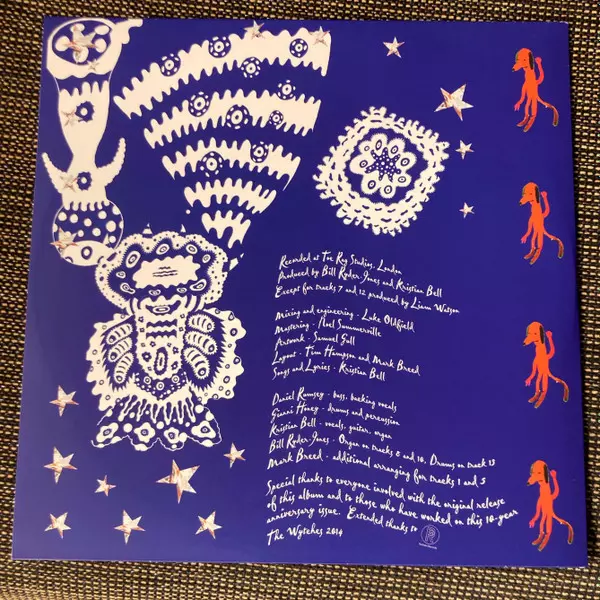 Recorded at Toe Rag Studios, London
Produced by Bill Ryder-Jones and Kristian Bell
Except for tracks 7 and 12 produced by Liam Watson
Mixing and engineering - Luke Oldfield
Mastering - Noel Summerville
Artwork - Samuel Gull
Layout - Tim Hampson and Mark Breed
Songs and Lyrics - Kristian Bell
Daniel Rumsey - bass, backing vocals
Gianni Honey - drums and percussion
Kristian Bell - vocals, guitar, organ
Bill Ryder-Jones - Organ on tracks 8 and 10, Drums on track 13
Mark Breed - additional arranging for tracks 1 and 5
Special thanks to everyone involved with the original release
of this album and to those who have worked on this 10-year
anniversary issue. Extended thanks to
The Wytches 2014